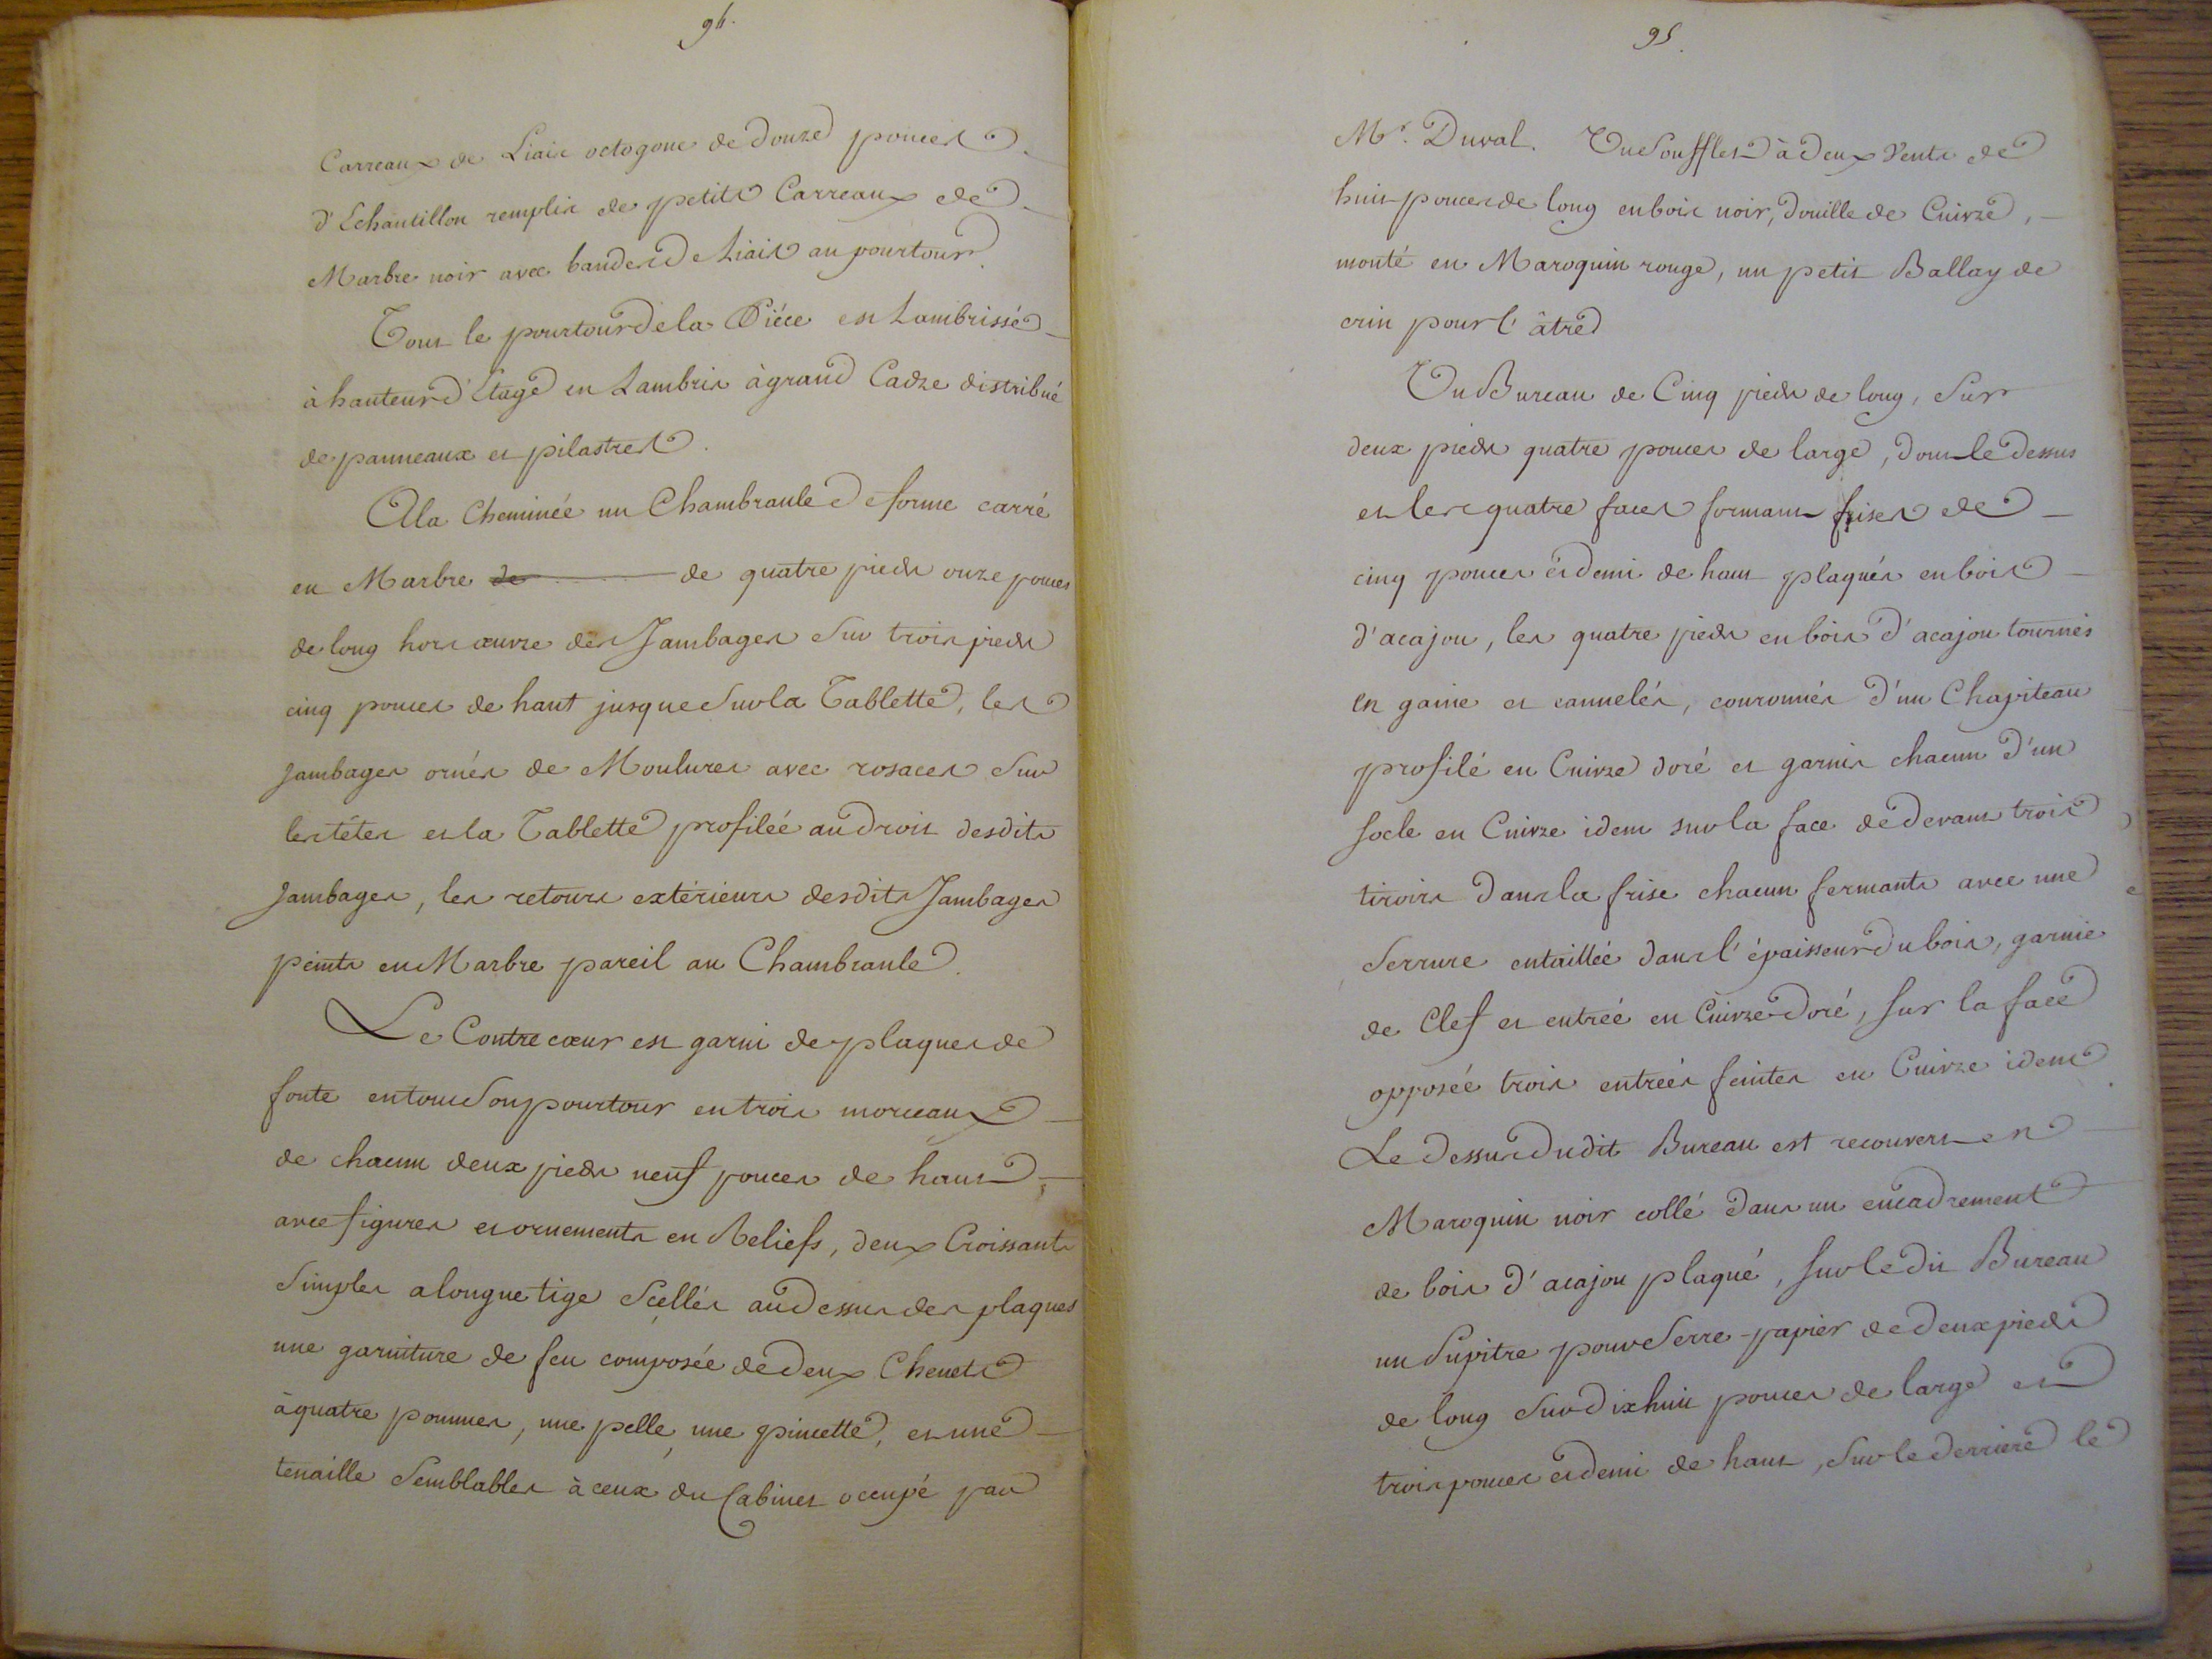 94.
Carreaux de Liais octogone de douze pouces
d'Echantillon remplis de petits Carreaux de
Marbre noir avec bandes de Liais au pourtour.
Tout le pourtour de la Piéce est Lambrissé
à hauteur d'Etage en Lambris à grand Cadre distribué
de panneaux et pilastres.
A la Cheminée un Chambranle de forme carré
en Marbre de quatre pieds onze pouces
de long hors œuvre des Jambages sur trois pieds
cinq pouces de haut jusque sur la Tablette, les
Jambages ornés de Moulures avec rosaces sur
les têtes et la Tablette profilée au droit desdits
Jambages, les retours extérieurs desdits Jambages
peints en Marbre pareil au Chambranle.
Le Contrecœur est garni de plaques de
fonte en tout son pourtour en trois morceaux
de chacun deux pieds neuf pouces de haut,
avec figures et ornements en Reliefs, deux Croissants
simples a longue tige scellés au dessus des plaques
une garniture de feu composée de deux Chenets
à quatre pommes, une pelle, une pincette, et une
tenaille semblables à ceux du Cabinet occupé par
95.
Mr. Duval. Un Soufflet à deux Vents de
huit pouces de long en bois noir, douille de Cuivre,
monté en Maroquin rouge, un petit Ballay de
crin pour l'âtre
Un Bureau de Cinq pieds de long, sur
deux pieds quatre pouces de large, dont le dessus
et les quatre faces formant frises de
cinq pouces et demi de haut plaqués en bois
d'acajou, les quatre pieds en bois d'acajou tournés
en gaine et cannelés, couronnés d'un Chapiteau
profilé en Cuivre doré et garnis chacun d'un
socle en Cuivre idem sur la face de devant trois
tiroirs dans la frise chacun fermants avec une
Serrure entaillée dans l'épaisseur du bois, garnie
de Clef et entrée en Cuivre doré, sur la face
opposée trois entrées feintes en Cuivre idem
Le dessus dudit Bureau est recouvert en
Maroquin noir collé dans un encadrement
de bois d'acajou plaqué, sur le dit Bureau
un Pupitre pour Serre-papier de deux pieds
de long sur dix huit pouces de large et
trois pouces et demi de haut, sur le derriere le